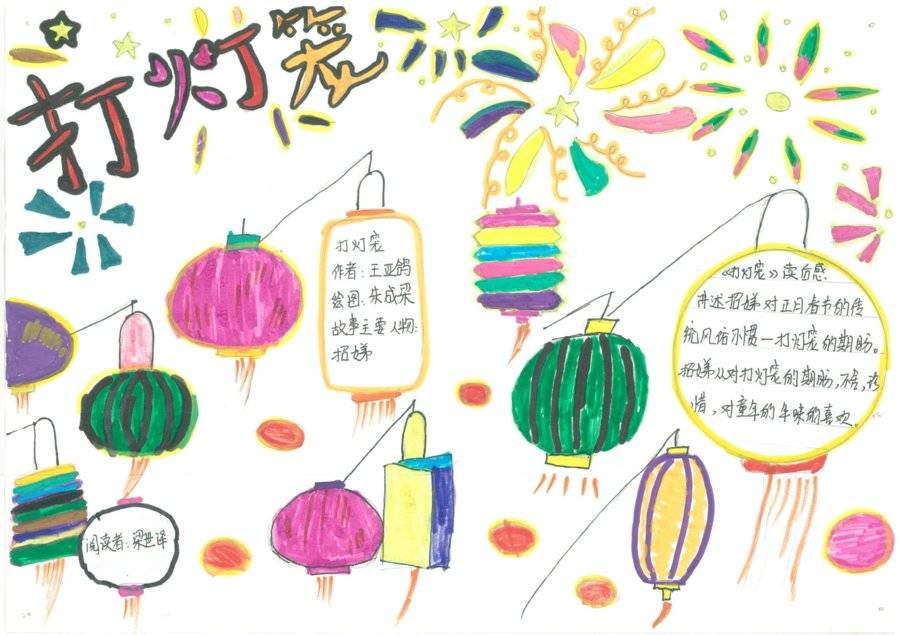 打灯笼
打灯笼
作者：王亚鸽
绘图：朱成梁
故事主要人物：
招娣
《打灯笼》读后感
讲述招娣对正月春节的传
统风俗习惯—打灯笼的期盼。
招娣从对打灯笼的期盼，不舍，珍
惜，对童年的年味的喜欢。
阅读者：梁世译